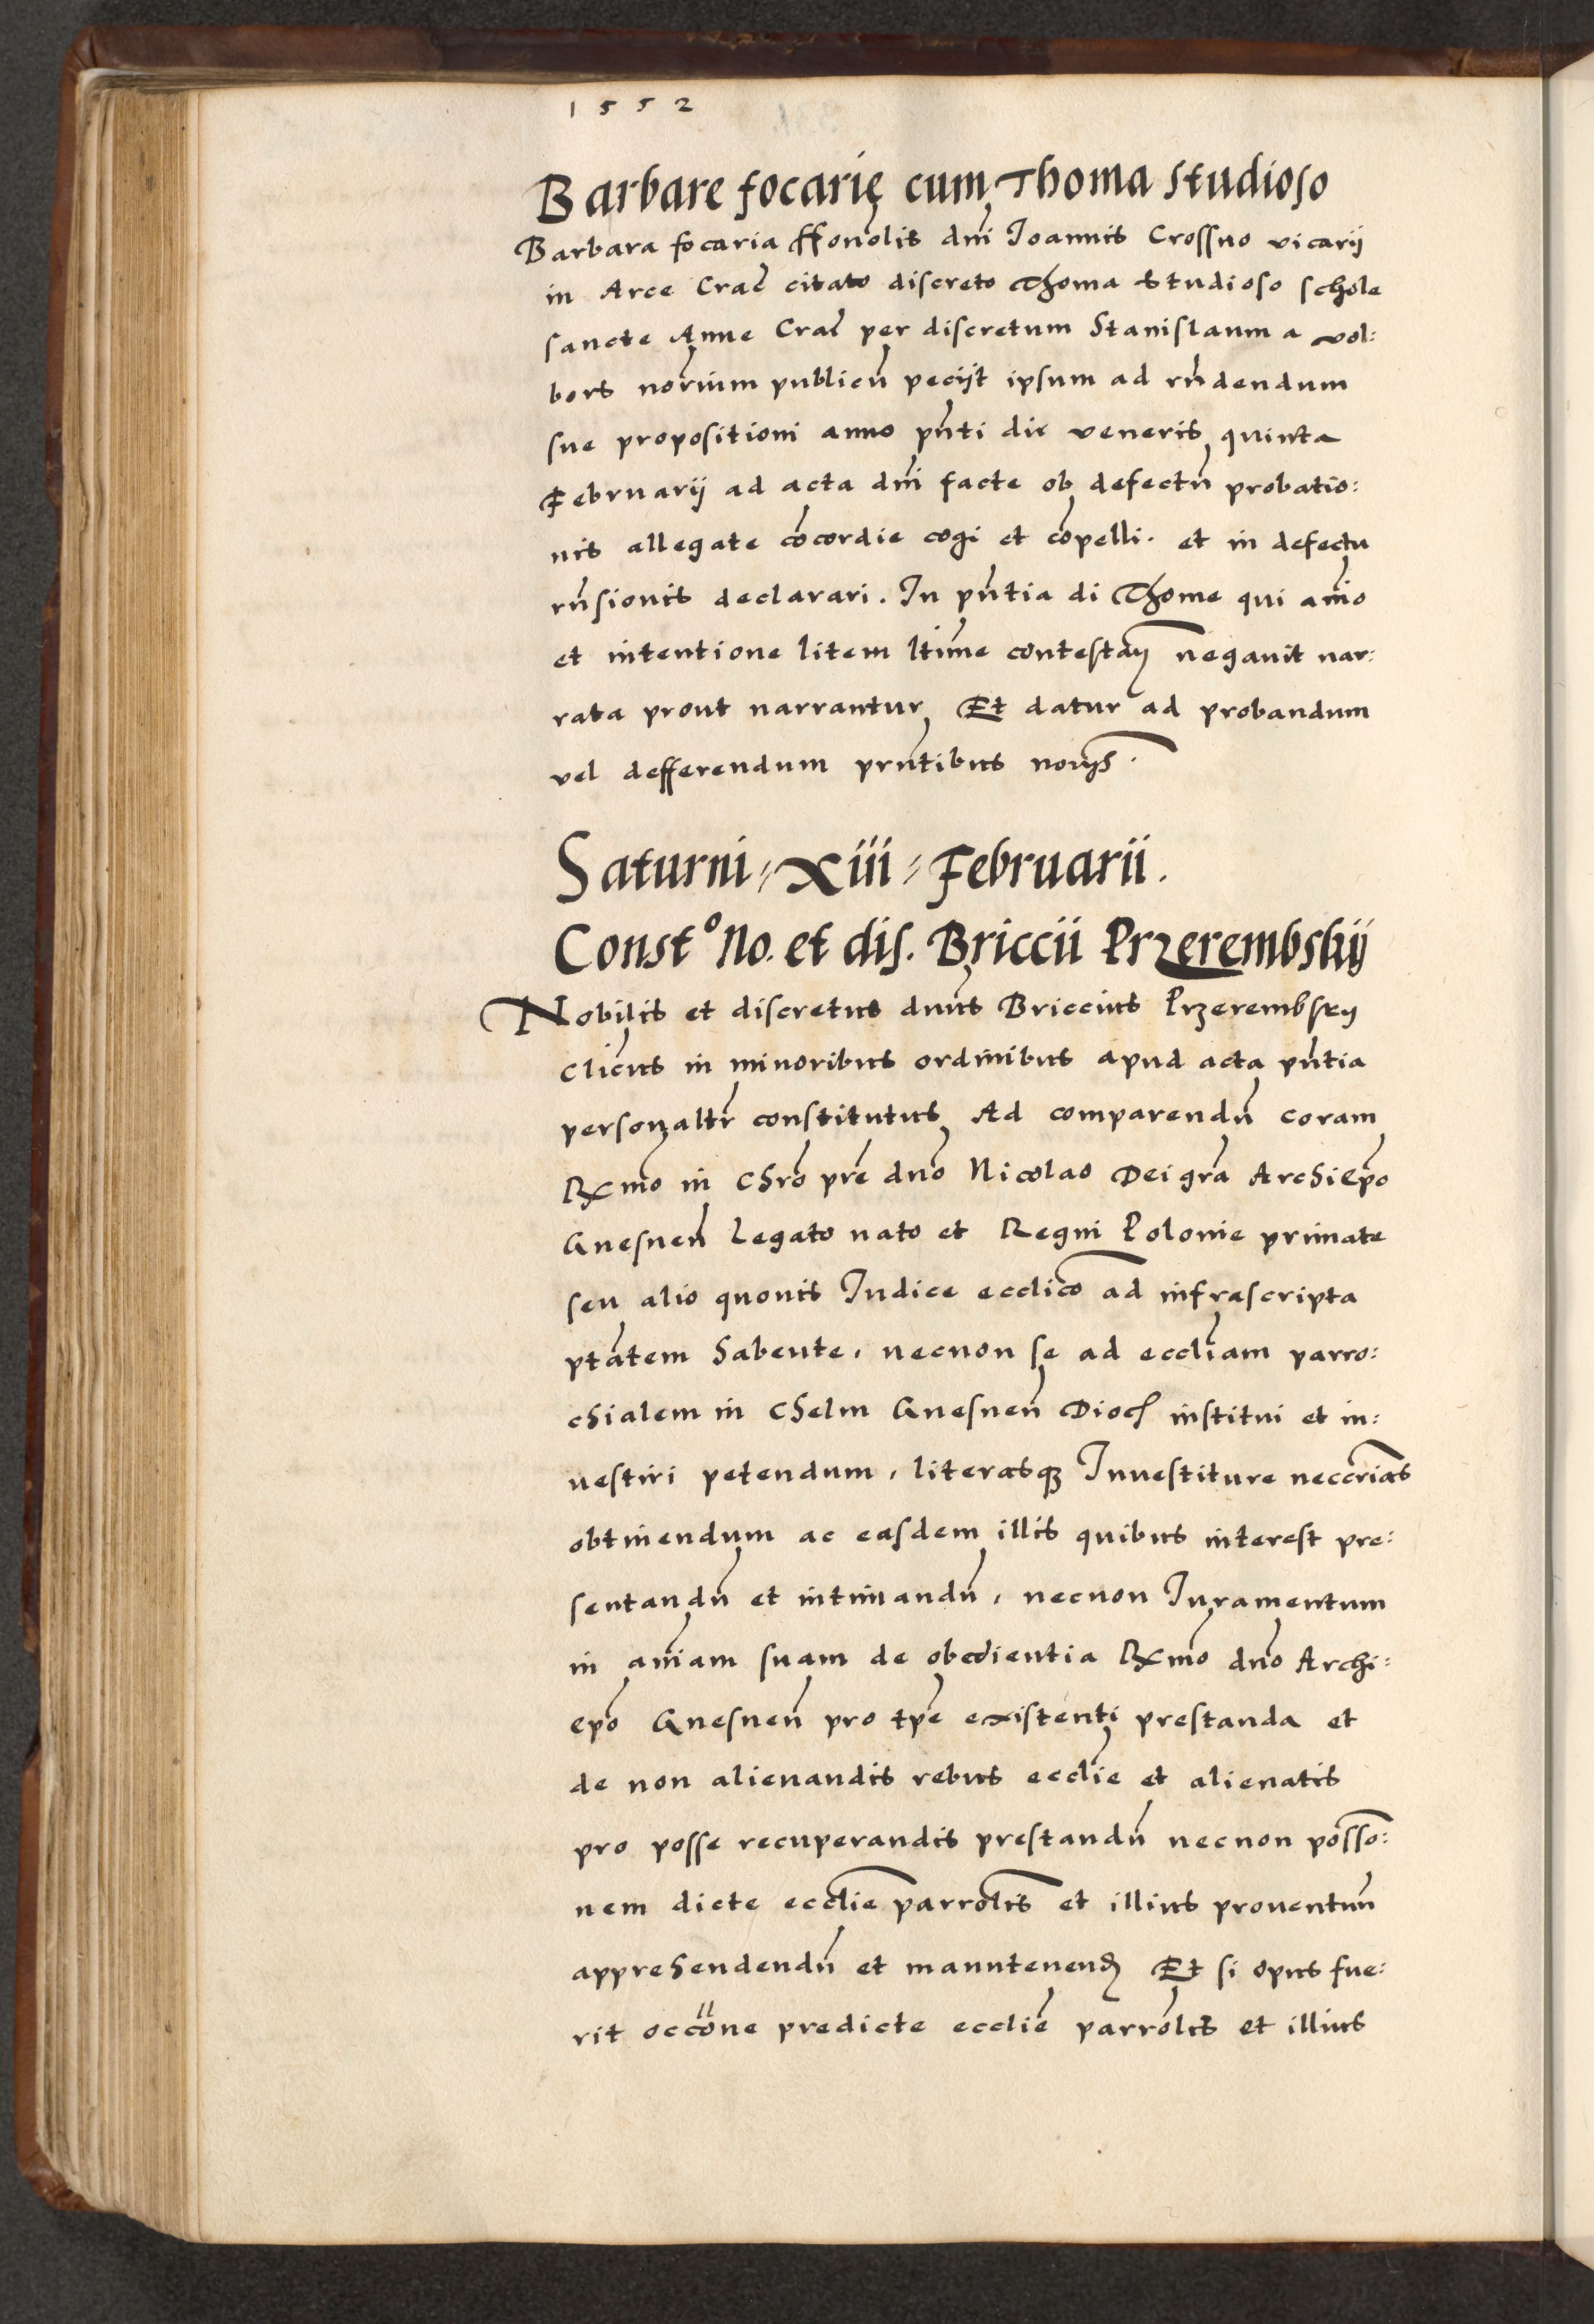 1552
Barbare focarię cum Thoma studioso
Barbara focaria Hono͂lis dn͂i Ioannis Crossno vicarij
in Arce Crac͂ citato discreto Thoma studioso schole
sancte Anne Crac͂ per discretum Stanislaum a vol:
bors nor͂ium publicu͂ pecijt ipsum ad rn͂dendum
sue propositioni anno pn͂ti die veneris quinta
Februarij ad acta dn͂i facte ob defectu͂ probatio:
nis allegate co͂cordie cogi et co͂pelli. et in defectu
rn͂sionis declarari. In pn͂tia di Thome qui an͂io
et intentione litem ltim͂e contestan͂ negauit nar:
rata prout narrantur Et datur ad probandum
vel defferendum prn͂tibus norijs͂.
Saturni, Xiii, Februarii.
Const° No. et dis. Briccii Przerembskij
Nobilis et discretus dnu͂s Briccius Przerembsky
clic͂us in minoribus ordinibus apud acta pn͂tia
personaltr͂ constitutus Ad comparendu͂ coram
Rxmo͂ in chro͂ pre͂ dno͂ Nicolao Dei gra͂ Archiepo͂
Gnesnen͂ Legato nato et Regni Polonie primate
seu alio quouis Iudice ecclico͂ ad infrascripta
pta͂tem habente, necnon se ad eccli͂am parro:
chialem in Chelm Gnesnen͂ Dioc͂ institui et in:
uestiri petendum, literasqꝫ Inuestiture neccri͂as
obtinendum ac easdem illis quibus interest pre:
sentandu͂ et intimandu͂, necnon Iuramentum
in an͂iam suam de obedientia Rxmo͂ dno͂ Archi:
epo͂ Gnesnen͂ pro tpe͂ existenti prestanda et
de non alienandis rebus ecclie͂ et alienatis
pro posse recuperandis prestandu͂ necnon posso͂:
nem dicte ecclie͂ parrolis͂ et illius prouentuu͂
apprehendendu͂ et manutenend͂ Et si opus fue:
rit occo͂ne predicte ecclie͂ parro͂lis et illius